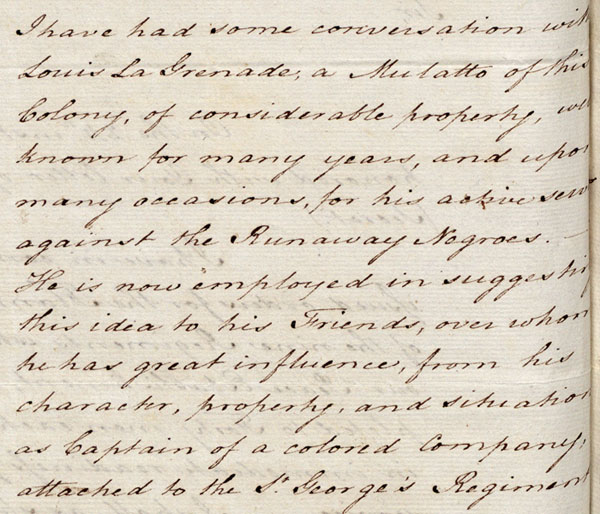 I have had some conversation with
Louis La Grenade, a Mulatto of this
Colony, of considerable property, we
known for many years, and upon
many occasions, for his active serv
against the Runaway Negroes. —
He is now employed in suggesting
this idea to his Friends, over whom
he has great influence, from his
character, property, and situation
as Captain of a colored Company,
attached to the St. George's Regiment